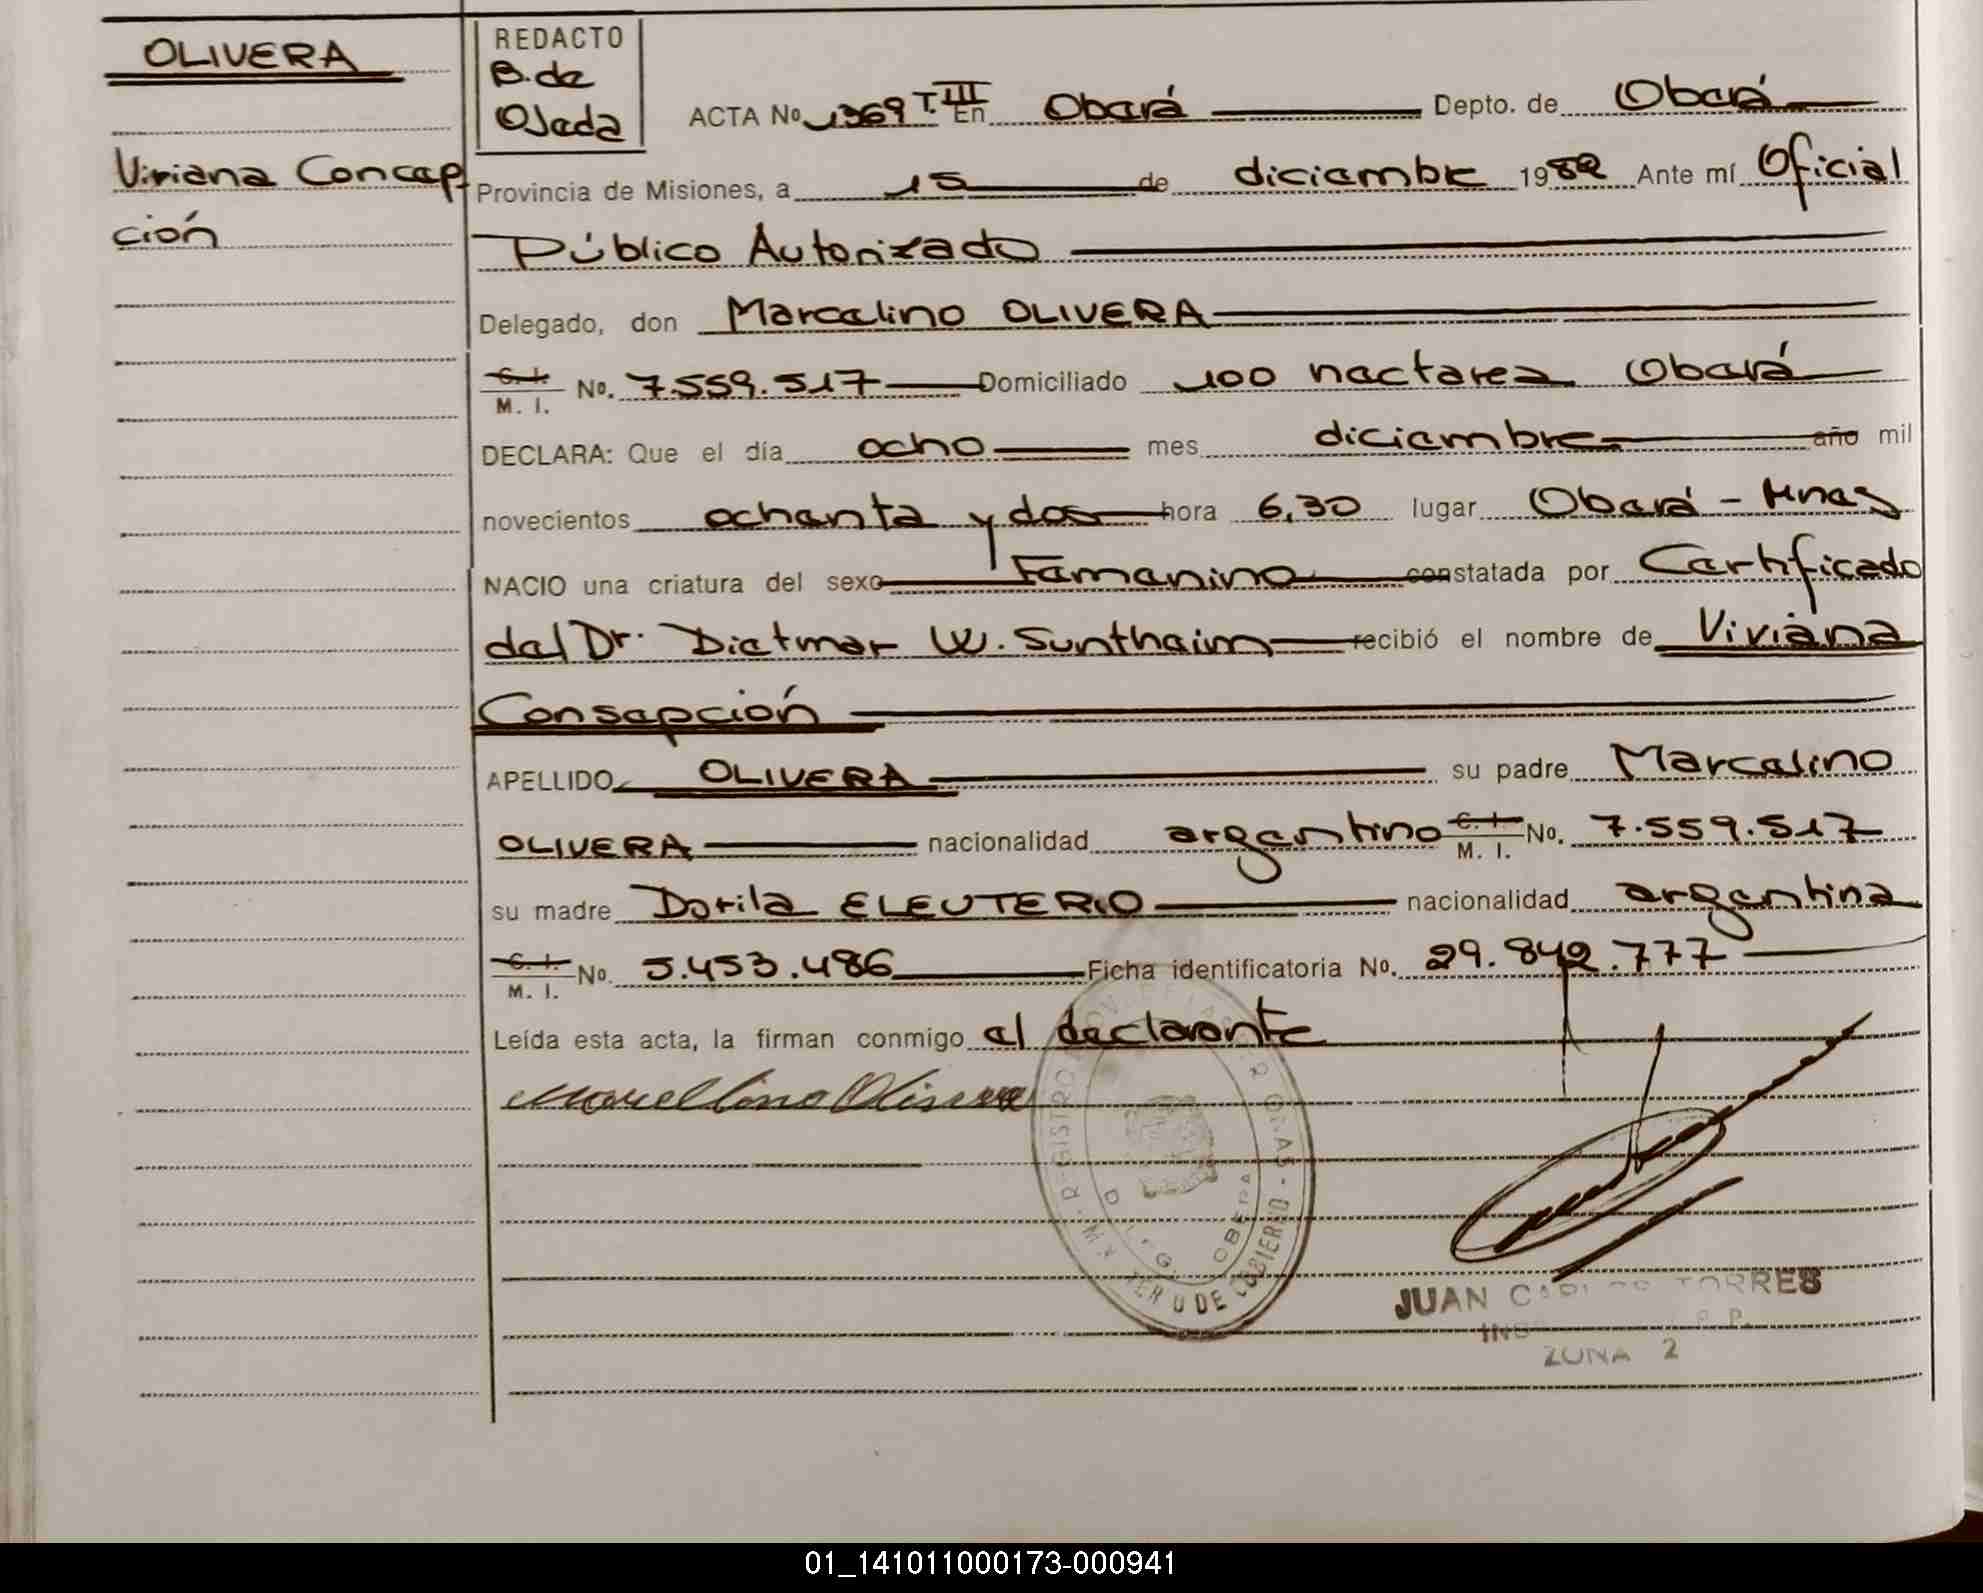 OLIVERA
Viviana Concep-
ción
REDACTO
B. de
Ojeda
ACTA No 1369 T. III En Oberá Depto. de Oberá
Provincia de Misiones, a 15 de diciembre 1982 Ante mí Oficial
Público Autorizado
Delegado, don Marcelino OLIVERA
C. I. M. I. No. 7.559.517 Domiciliado 100 hectarea Oberá
DECLARA: Que el día ocho mes diciembre año mil
novecientos ochenta y dos hora 6,30 lugar Oberá - Mnes
NACIO una criatura del sexo Femenino constatada por Certificado
del Dr. Dietmar W. Sontheim recibió el nombre de Viviana
Consepción
APELLIDO OLIVERA su padre Marcelino
OLIVERA nacionalidad argentino C. I. M. I. No. 7.559.517
su madre Dorila ELEUTERIO nacionalidad argentina
C. I. M. I. No. 5.453.486 Ficha identificatoria No. 29.842.777
Leída esta acta, la firman conmigo el declarante
Marcellino Olivera
REGISTRO
OBERA
DE GOBIERNO
JUAN CARLOS TORRES
ZONA 2
01_141011000173-000941